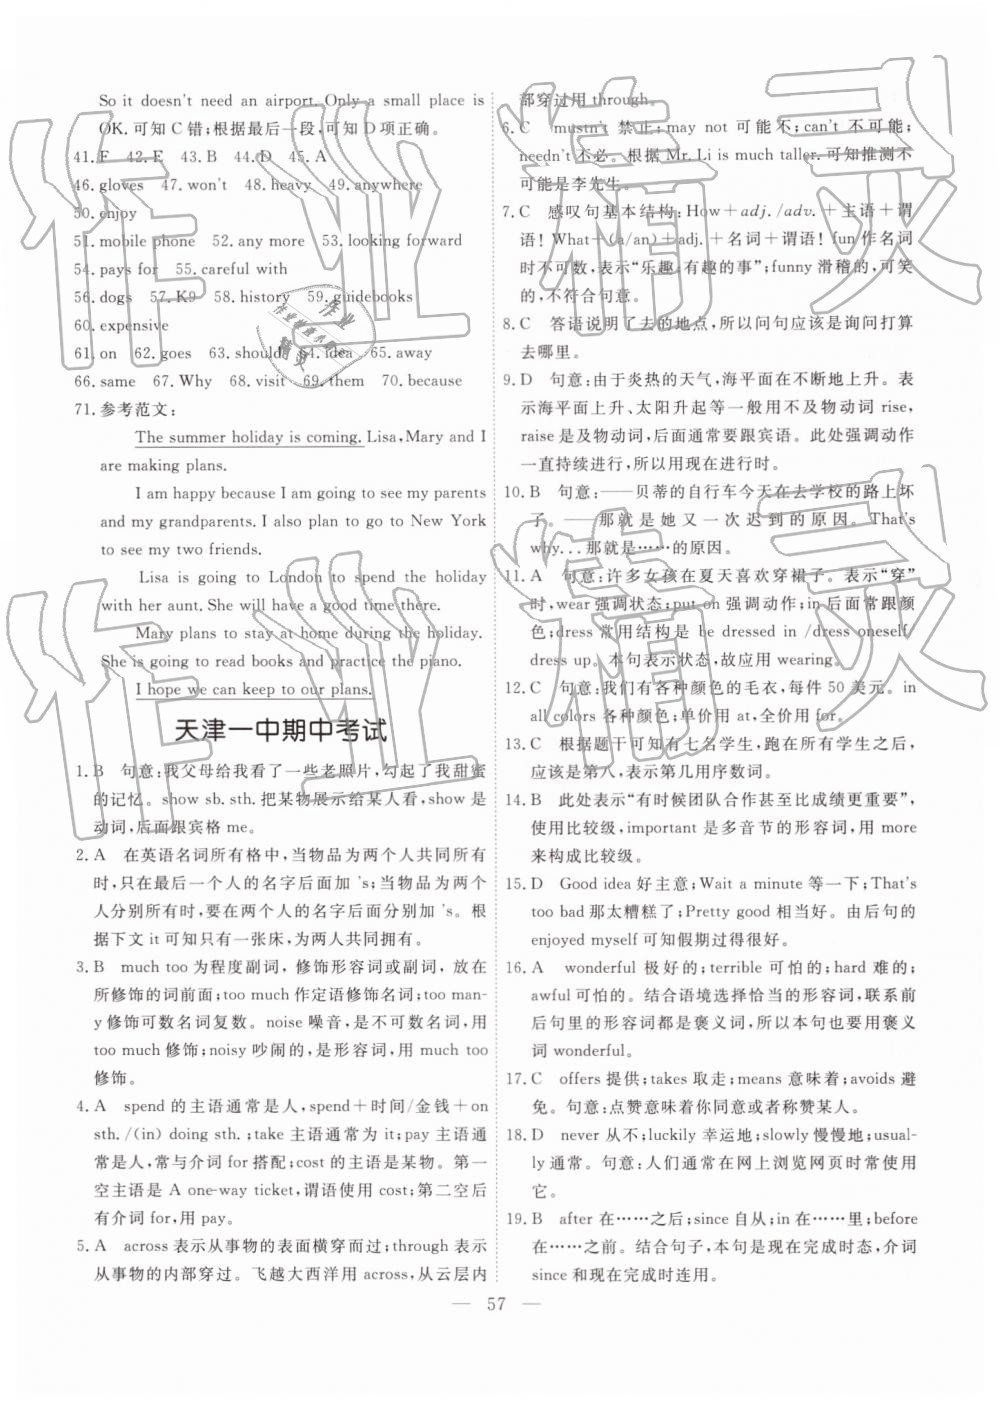 So it doesn't need an airport. Only a small place is
OK. 可知 C 错；根据最后一段，可知 D 项正确。
41. F　42. E　43. B　44. D　45. A
46. gloves　47. won't　48. heavy　49. anywhere
50. enjoy
51. mobile phone　52. any more　53. looking forward
54. pays for　55. careful with
56. dogs　57. K9　58. history　59. guidebooks
60. expensive
61. on　62. goes　63. should　64. idea　65. away
66. same　67. Why　68. visit　69. them　70. because
71. 参考范文：
The summer holiday is coming. Lisa, Mary and I
are making plans.
I am happy because I am going to see my parents
and my grandparents. I also plan to go to New York
to see my two friends.
Lisa is going to London to spend the holiday
with her aunt. She will have a good time there.
Mary plans to stay at home during the holiday.
She is going to read books and practice the piano.
I hope we can keep to our plans.
天津一中期中考试
1. B　句意：我父母给我看了一些老照片，勾起了我甜蜜
的记忆。show sb. sth. 把某物展示给某人看，show 是
动词，后面跟宾格 me。
2. A　在英语名词所有格中，当物品为两个人共同所有
时，只在最后一个人的名字后面加 's；当物品为两个
人分别所有时，要在两个人的名字后面分别加 's。根
据下文 it 可知只有一张床，为两人共同拥有。
3. B　much too 为程度副词，修饰形容词或副词，放在
所修饰的词前面；too much 作定语修饰名词；too man-
y 修饰可数名词复数。noise 噪音，是不可数名词，用
too much 修饰；noisy 吵闹的，是形容词，用 much too
修饰。
4. A　spend 的主语通常是人，spend＋时间/金钱＋on
sth. /(in) doing sth. ；take 主语通常为 it；pay 主语
通常是人，常与介词 for 搭配；cost 的主语是某物。第一
空主语是 A one-way ticket，谓语使用 cost；第二空后
有介词 for，用 pay。
5. A　across 表示从事物的表面横穿而过；through 表示
从事物的内部穿过。飞越大西洋用 across，从云层内
部穿过用 through。
6. C　mustn't 禁止；may not 可能不；can't 不可能；
needn't 不必。根据 Mr. Li is much taller. 可知推测不
可能是李先生。
7. C　感叹句基本结构：How＋adj. /adv. ＋主语＋谓
语！What＋(a/an)＋adj. ＋名词＋谓语！fun 作名词
时不可数，表示“乐趣；有趣的事”；funny 滑稽的，可笑
的，不符合句意。
8. C　答语说明了去的地点，所以问句应该是询问打算
去哪里。
9. D　句意：由于炎热的天气，海平面在不断地上升。表
示海平面上升、太阳升起等一般用不及物动词 rise，
raise 是及物动词，后面通常要跟宾语。此处强调动作
一直持续进行，所以用现在进行时。
10. B　句意：——贝蒂的自行车今天在去学校的路上坏
了。——那就是她又一次迟到的原因。That's
why... 那就是……的原因。
11. A　句意：许多女孩在夏天喜欢穿裙子。表示“穿”
时，wear 强调状态；put on 强调动作；in 后面常跟颜
色；dress 常用结构是 be dressed in /dress oneself/
dress up。本句表示状态，故应用 wearing。
12. C　句意：我们有各种颜色的毛衣，每件 50 美元。in
all colors 各种颜色；单价用 at，全价用 for。
13. C　根据题干可知有七名学生，跑在所有学生之后，
应该是第八，表示第几用序数词。
14. B　此处表示“有时候团队合作甚至比成绩更重要”，
使用比较级，important 是多音节的形容词，用 more
来构成比较级。
15. D　Good idea 好主意；Wait a minute 等一下；That's
too bad 那太糟糕了；Pretty good 相当好。由后句的
enjoyed myself 可知假期过得很好。
16. A　wonderful 极好的；terrible 可怕的；hard 难的；
awful 可怕的。结合语境选择恰当的形容词，联系前
后句里的形容词都是褒义词，所以本句也要用褒义
词 wonderful。
17. C　offers 提供；takes 取走；means 意味着；avoids 避
免。句意：点赞意味着你同意或者称赞某人。
18. D　never 从不；luckily 幸运地；slowly 慢慢地；usual-
ly 通常。句意：人们通常在网上浏览网页时常使用
它。
19. B　after 在……之后；since 自从；in 在……里；before
在……之前。结合句子，本句是现在完成时态，介词
since 和现在完成时连用。
— 57 —
作业精灵
作业精灵
作业
作业检查小助手
精灵